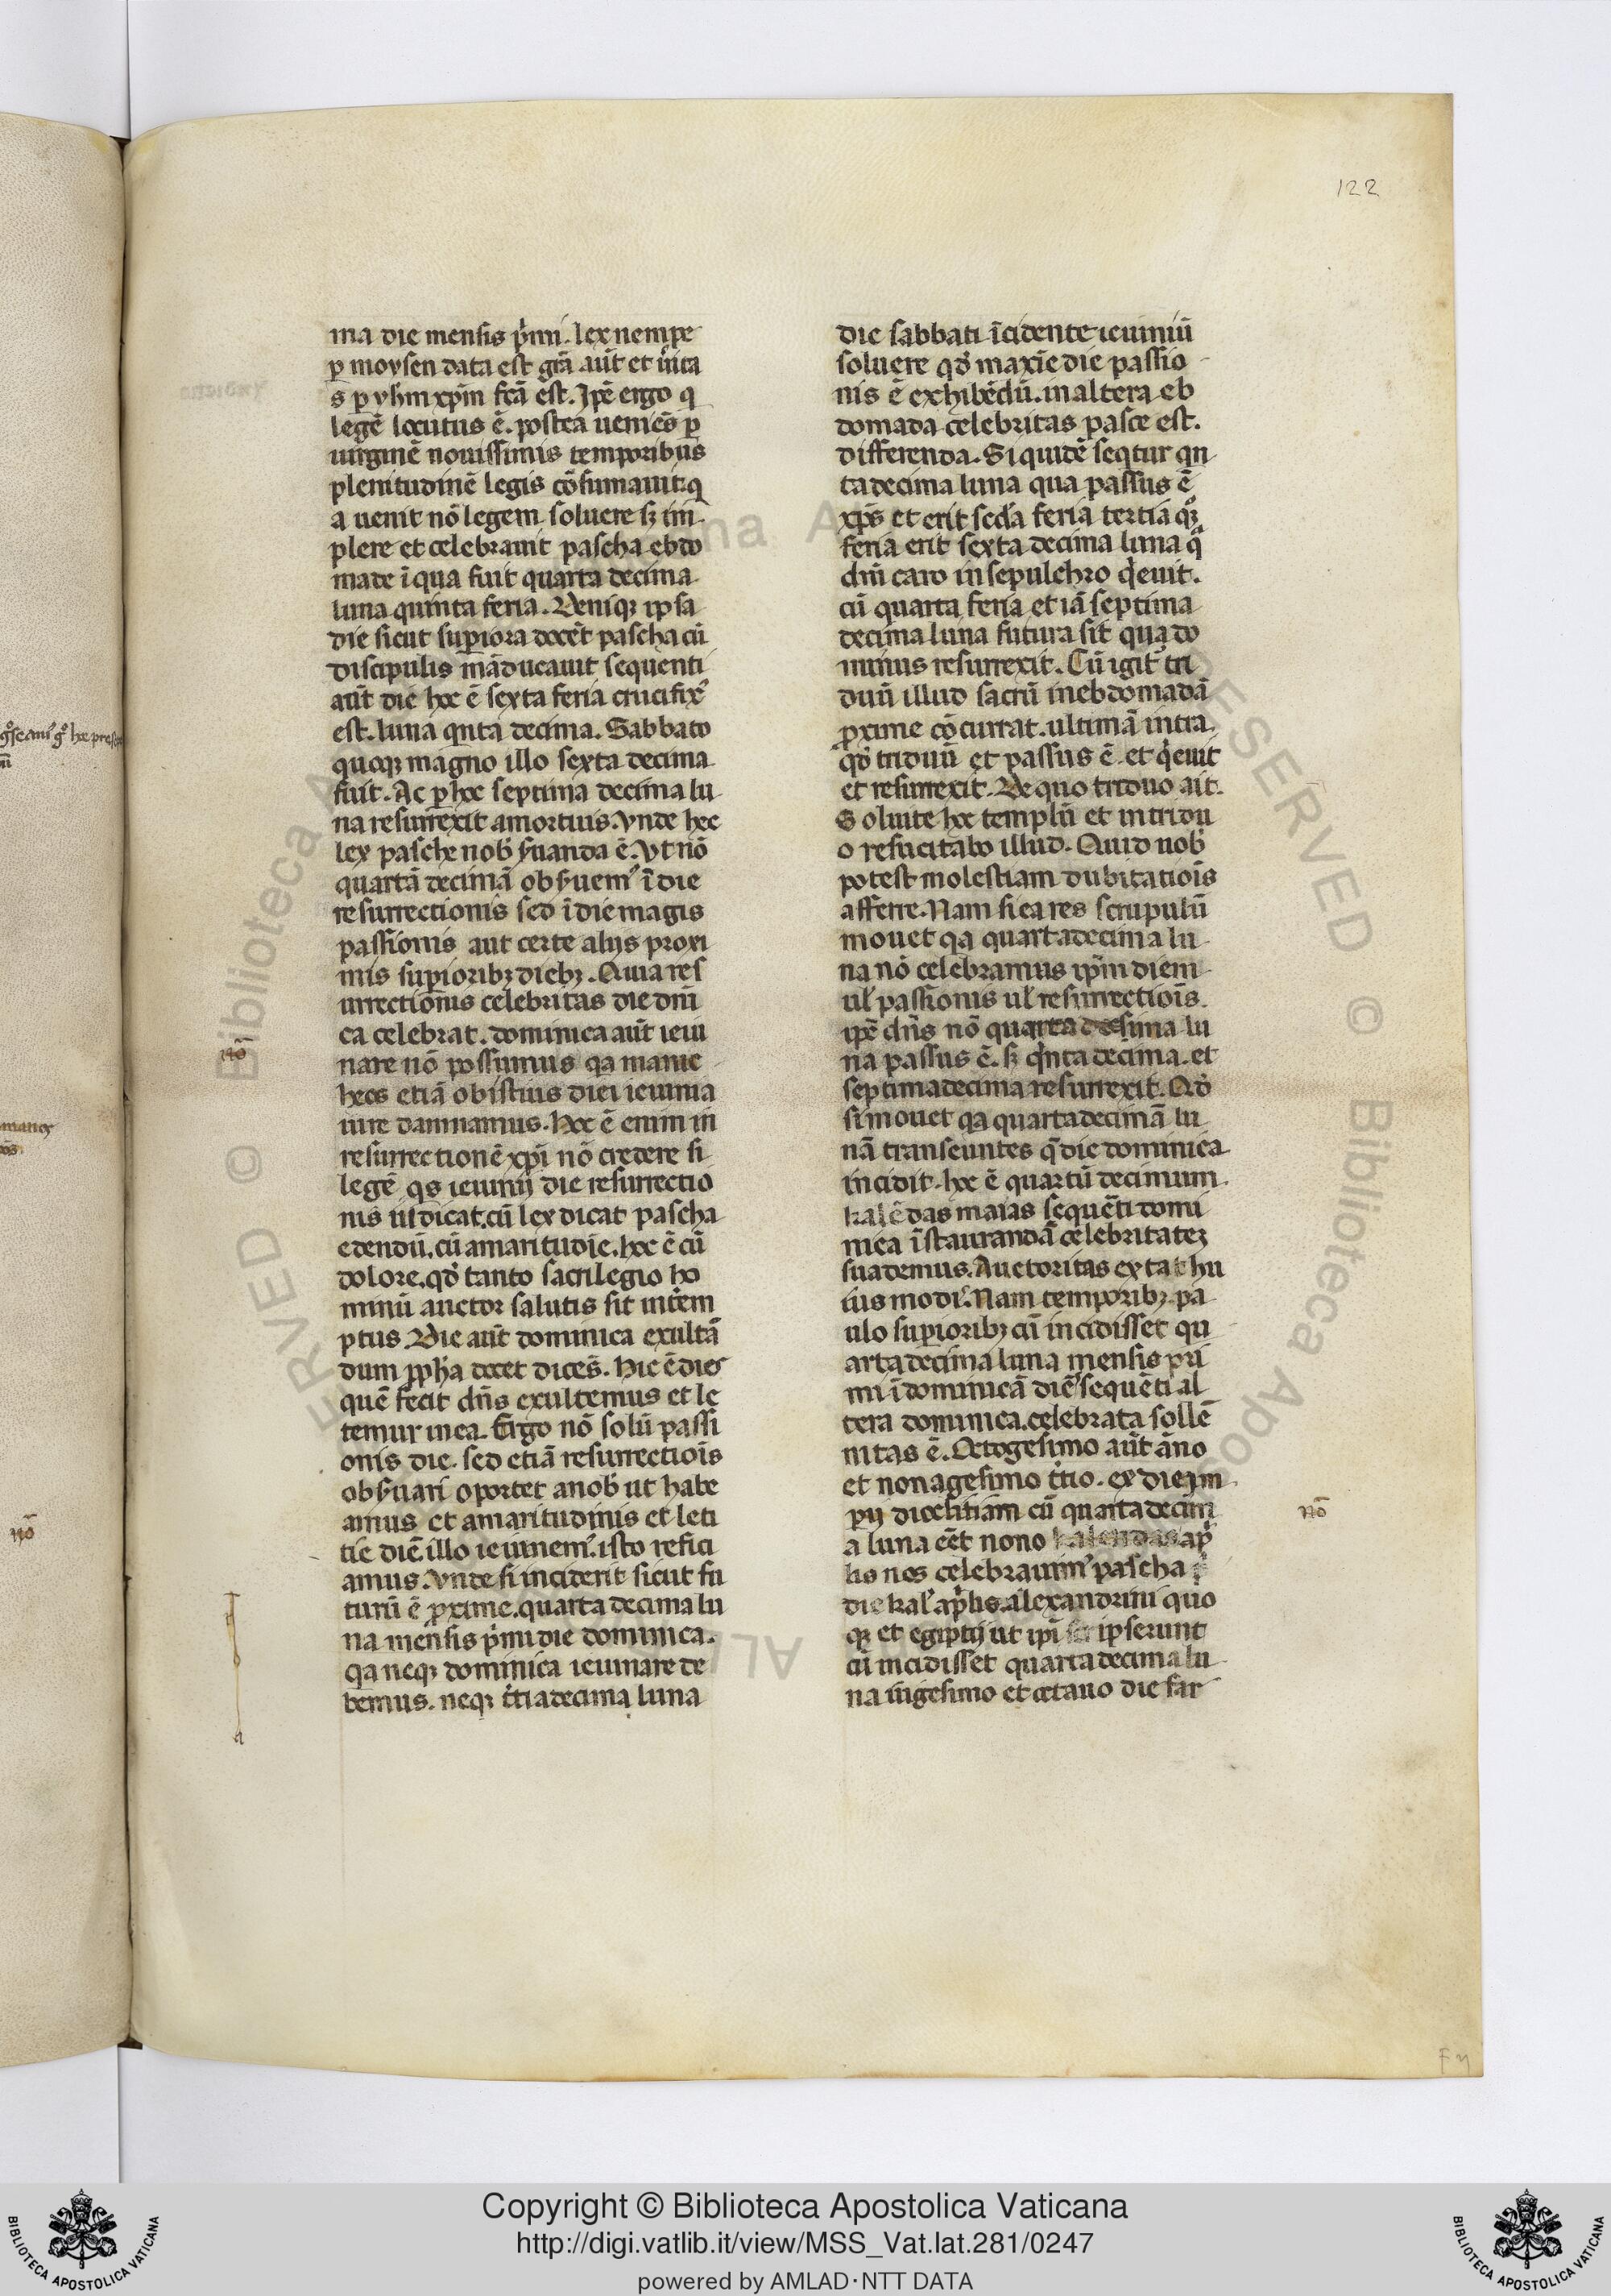 122
ma die mensis p̄mi. lex nempe
ꝑ moysen data est grā aūt et ůita
s ꝑ yhm xp̄m fcā est. Jpē ergo q
legē locutus ē. postea ueniēs ꝑ
uirginē nouissimis temporibus
plenitudinē legis cōsumauit. q
a uenit nō legem soluere sꝫ im
plere et celebrauit pascha ebdo
made ī qua fuit quarta decima
luna quinta feria. Deniqꝫ ipsa
die sicut superiora docēt pascha cū
discipulis māducauit sequenti
aūt die hoc ē sexta feria crucifix᷒
est. luna qnta decima. Sabbato
quoqꝫ magno illo sexta decima
fuit. Ac ꝑ hoc septima decima lu
na resurrexit amortuis. Vnde hec
lex pasche nob̄ s̄uanda ē. Vt nō
quartā decimā obs̄uem᷒ ī die
resurrectionis sed ī die magis
passionis aut certe alijs proxi
mis supioribꝫ diebꝫ. Quia res
urrectionis celebritas die dn̄i
ca celebrat. dominica aūt ieiu
nare nō possumus qa manic
heos etiā ob istius diei ieiunia
iure damnamus. Hoc ē enim in
resurrectionē xp̄i nō credere si
legē qs ieiunij die resurrectio
nis īdicat. cū lex dicat pascha
edendū. cū amaritudīe. hoc ē cū
dolore. qđ tanto sacrilegio ho
minū auctor salutis sit intēm
ptus. Die aūt dominica exultā
dum ꝓpħa docet dicēs. Hic ē dies
quē fecit dn̄s exultemus et le
temur in ea. Ergo nō solū passi
onis die. sed etiā resurrectiōis
obs̄uari oportet anob̄ ut habe
amus et amaritudinis et leti
tie diē illo ieiunem᷒. isto refici
amus. Vnde si inciderit sicut fu
turū ē ꝓxime. quarta decima lu
na mensis p̄mi die dominica.
qa neqꝫ dominica ieiunare de
bemus. neqꝫ t̄tiadecima luna
die sabbati īcidente ieiuniū
soluere qđ maxīe die passio
nis ē exhibēdū. in altera eb
domada celebritas pasce est.
differenda. Si quidē seqtur qn
tadecima luna qua passus ē
xp̄s et erit scđa feria tertia qꝫ
feria erit sexta decima luna q
dn̄i caro in sepulchro q̄euit.
cū quarta feria et iā septima
decima luna futura sit qua do
minus resurrexit. Cū igit᷒ tri
duū illud sacrū in ebdomadā
ꝓxime cōcurrat. ultimā intra
qđ triduū et passus ē. et q̄euit
et resurrexit. De quo triduo ait.
Soluite hoc templū et in tridu
o resucitabo illud. Quid nob̄
potest molestiam dubitatiōis
afferre. Nam si ea res scrupulū
mouet qa quartadecima lu
na nō celebramus ip̄m diem
ul̄ passionis ul̄ resurrectiōis.
ipē dn̄s nō quarta desima lu
na passus ē. sꝫ q̄nta decima. et
septimadecima resurrexit. Qđ
si mouet qa quartadecimā lu
nā transeuntes q̄ die dominica
incidit. hoc ē quartū decimum
kalēdas maias sequēti domi
nica īstaurandā celebritateꝫ
suademus. Auctoritas extat hu
ius modi᷒. Nam temporibꝫ pa
ulo supioribꝫ cū incidisset qu
arta decima luna mensis pri
mi ī dominicā diē sequēti al
tera dominica. celebrata sollē
nitas ē. Octogesimo aūt āno
et nonagesimo t̄tio. ex die im
pij dioclitiām cū quarta decim
a luna eēt nono kalendas ap̄
lis nos celebrauim᷒ pascha
die kal̄ ap̄lis. alexandrini quo
qꝫ et egiptij ut ipī scripserunt
cū incidisset quarta decima lu
na uigesimo et octauo die far
nō
nō
nō
Copyright © Biblioteca Apostolica Vaticana
http://digi.vatlib.it/view/MSS_Vat.lat.281/0247
powered by AMLAD·NTT DATA
BIBLIOTECA APOSTOLICA VATICANA
BIBLIOTECA APOSTOLICA VATICANA